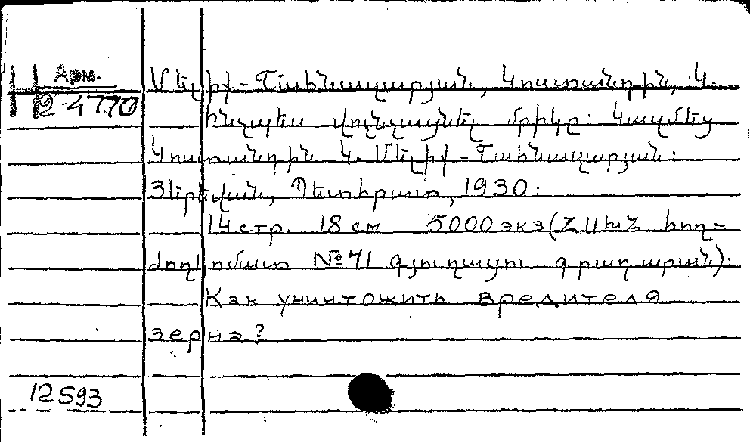 Арм.
2 4770
Մելիք-Շահնազարյան, Կոստանդին, Կ.
Ինչպես վոչնչացնել մրիկը: Կազմեց
Կոստանդին Կ. Մելիք-Շահնազարյան:
Յերեվան, Պետհրատ, 1930:
14 стр. 18 см 5000 экз (ՀՍԽՀ հող-
ժողկոմատ №71 գյուղացու գրադարան):
Как уничтожить вредителя
зерна?
12593